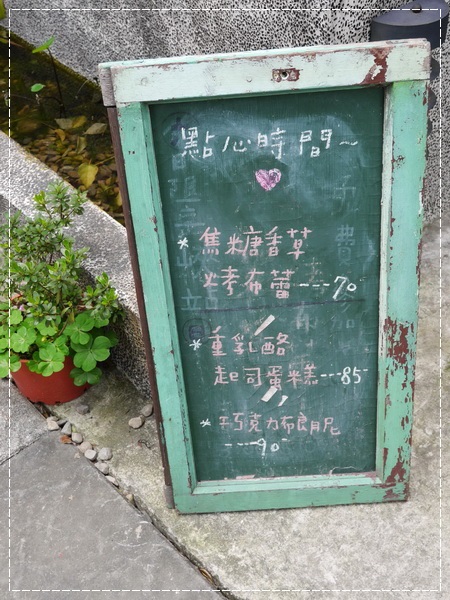 點心時間~
*焦糖香草
烤布蕾---70
*重乳酪
起司蛋糕---85
*巧克力布朗尼
----90